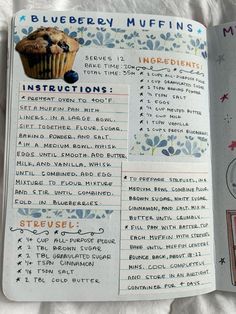 BLUEBERRY MUFFINS
SERVES 12
BAKE TIME: 20m
TOTAL TIME: 35m
INGREDIENTS:
2 CUPS ALL-PURPOSE
2 TSPN BAKING
TSPN SALT
2 EGGS
CUP MELTED BUTTER
CUP MILK
1 TSPN VANILLA
2 CUPS FRESH BLUEBERRIES
INSTRUCTIONS:
PREHEAT OVEN TO 400°F.
SET A MUFFIN PAN WITH
LINERS. IN A LARGE BOWL,
SIFT TOGETHER FLOUR, SUGAR,
BAKING POWDER, AND SALT.
IN A MEDIUM BOWL, WHISK
EGGS UNTIL SMOOTH AND ADD BUTTER,
MILK, AND VANILLA, WHISK
UNTIL COMBINED, ADD EGG
MIXTURE TO FLOUR MIXTURE
AND STIR UNTIL COMBINED.
FOLD IN BLUEBERRIES.
STREUSEL:
CUP ALL-PURPOSE FLOUR
2 TBL BROWN SUGAR
2 TBL GRANULATED SUGAR
TSPN CINNAMON
TSPN SALT
2 TBL COLD BUTTER
TO PREPARE STREUSEL, IN A
MEDIUM BOWL COMBINE FLOUR,
BROWN SUGAR, WHITE SUGAR,
CINNAMON, AND SALT. MIX IN
BUTTER UNTIL CRUMBLY.
FILL PAN WITH BATTER, TOP
EACH MUFFIN WITH STREUSEL
BAKE UNTIL MUFFIN CENTERS
BOUNCE BACK, ABOUT 18-22
MINS. COOL COMPLETELY
AND STORE IN AN AIRTIGHT
CONTAINER FOR 4 DAYS.